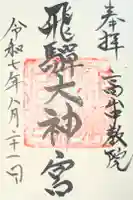 奉拝
高山中教院
飛驒大神宮
令和七年八月二十一日